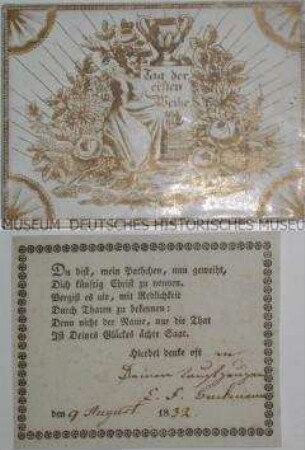 Tag der
ersten
Weihe
MUSEUM DEUTSCHES HISTORISCHES MUSEUM
Du bist, mein Pathchen, nun geweiht,
Dich künftig Christ zu nennen.
Vergiß es nie, mit Redlichkeit
Durch Thaten zu bekennen:
Denn nicht der Name, nur die That
Ist Deines Glückes ächte Saat.
Hierbei denke oft an
Deinen Taufzeugen
E. F.
den 9 August 1832